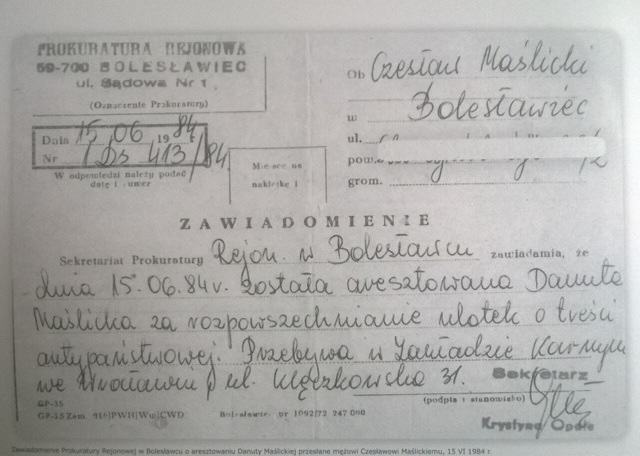 PROKURATURA REJONOWA
59-700 BOLESŁAWIEC
ul. Sądowa Nr 1
(Oznaczenie Prokuratury)
Dnia 15.06 1984
Nr 1 Ds 413/84
W odpowiedzi należy podać
datę i numer
Miejsce na
naklejkę
Ob Czesław Maślicki
w Bolesławiec
ul.
pow.
grom.
ZAWIADOMIENIE
Sekretariat Prokuratury Rejon. w Bolesławcu zawiadamia, że
dnia 15.06.84 r. została aresztowana Danuta
Maślicka za rozpowszechnianie ulotek o treści
antypaństwowej. Przebywa w Zakładzie Karnym
we Wrocławiu, ul. Klęczkowska 31.
Sekretarz
(podpis i stanowisko)
Krystyna
GP-35
GP-35 Zam.
Zawiadomienie Prokuratury Rejonowej w Bolesławcu o aresztowaniu Danuty Maślickiej przesłane mężowi Czesławowi Maślickiemu, 15 VI 1984 r.